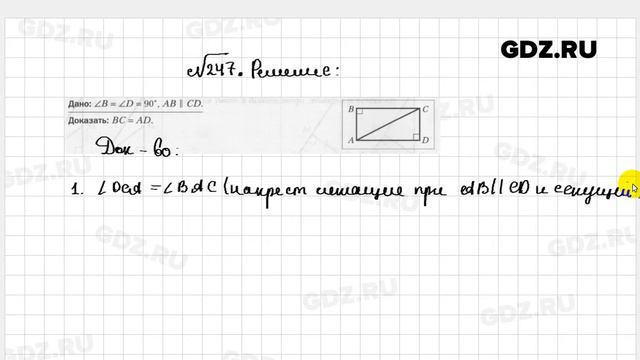 GDZ.RU
№247. Решение:
Дано: ∠B = ∠D = 90°, AB ∥ CD.
Доказать: BC = AD.
B C
A D
Док-во:
1. ∠DCA = ∠BAC (накрест лежащие при AB || CD и секущей
GDZ.RU
GDZ.RU
GDZ.RU
GDZ.RU
GDZ.RU